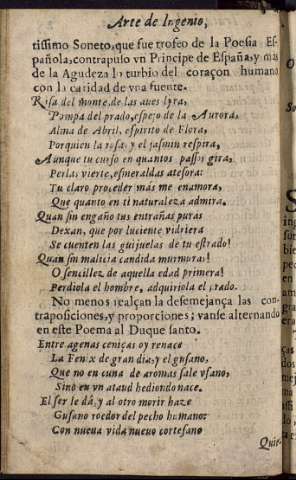 Arte de Ingenio,
tissimo Soneto, que fue trofeo de la Poesia Es-
pañola, contrapuso vn Principe de España, y mas
de la Agudeza lo turbio del coraçon humano
con la claridad de vna fuente.
Risa del monte, de las aues lyra,
Pompa del prado, espejo de la Aurora,
Alma de Abril, espiritu de Flora,
Por quien la rosa, y el jasmin respira,
Aunque tu curso en quantos passos gira,
Perlas vierte, esmeraldas atesora:
Tu claro proceder más me enamora,
Que quanto en ti naturaleza admira.
Quan sin engaño tus entrañas puras
Dexan, que por luciente vidriera
Se cuenten las guijuelas de tu estrado!
Quan sin malicia candida murmuras!
O sencillez de aquella edad primera!
Perdiola el hombre, adquiriola el prado.
No menos realçan la desemejança las con-
traposiciones, y proporciones; vanse alternando
en este Poema al Duque santo.
Entre agenas ceniças oy renace
La Fenix de gran dia, y el gusano,
Que no en cuna de aromas sale vfano,
Sino en vn ataud hediondo nace.
El ser le dà, y al otro morir haze
Gusano roedor del pecho humano:
Con nueua vida nueuo cortesano
Quie-